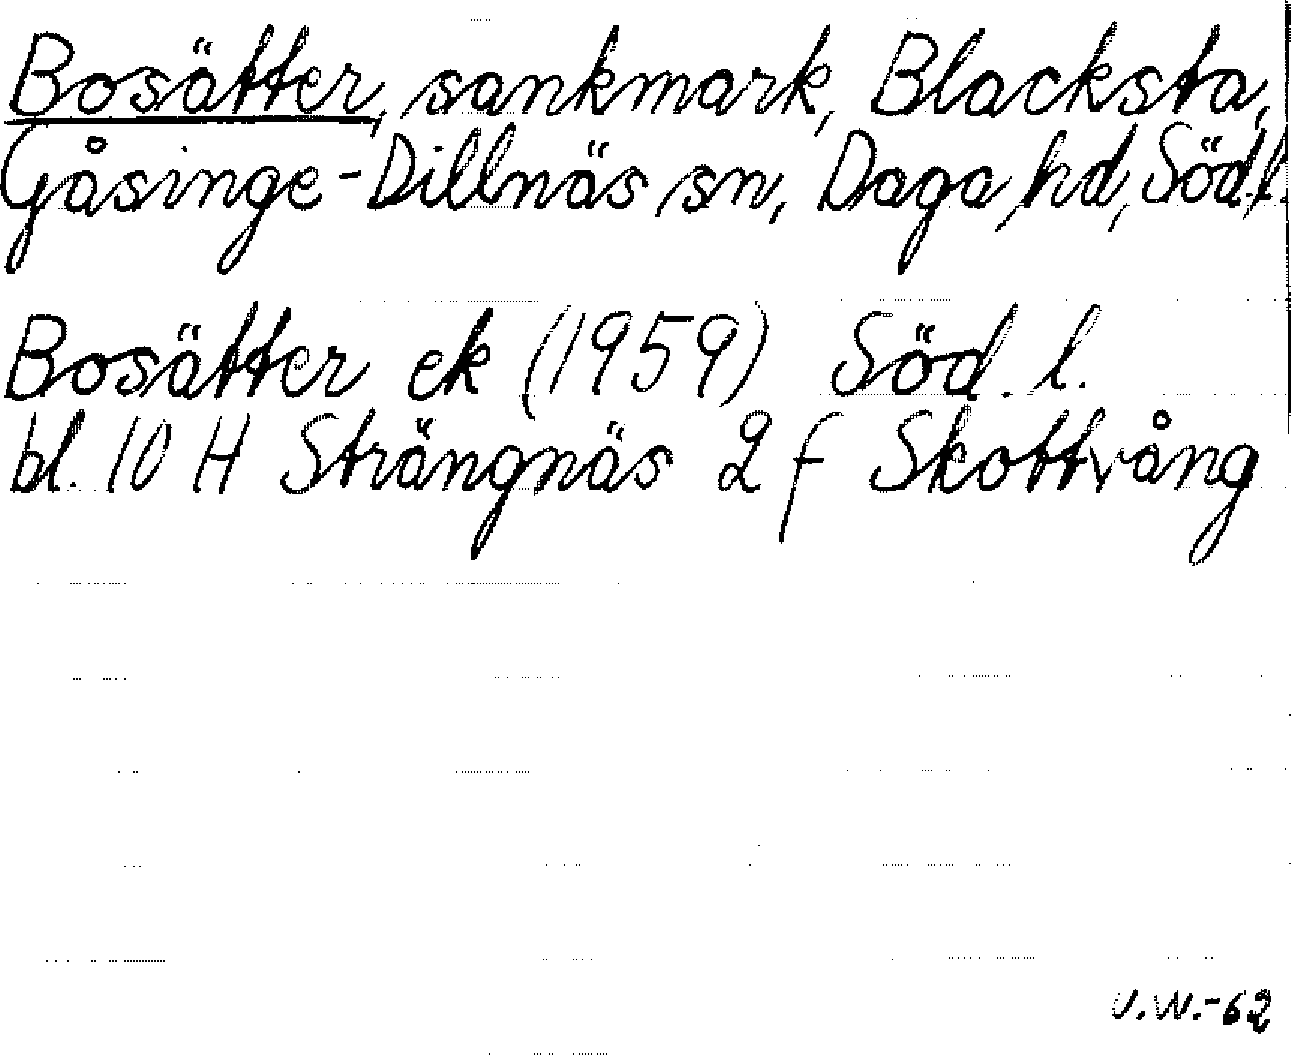 Bosätter, sankmark, Blacksta,
Gåsinge-Dillnäs sn, Daga hd, Söd.l.
Bosätter ek (1959) Söd. l.
bl. 10 H Strängnäs 2 f Skottvång
U.W.-62